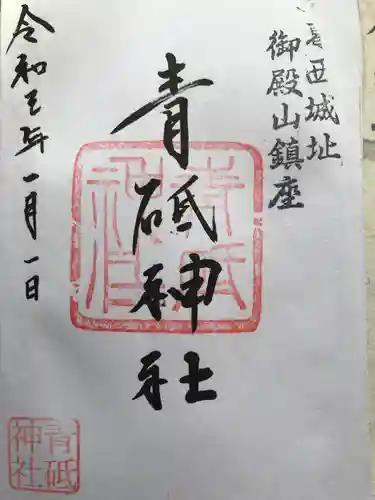 葛西城址
御殿山鎮座
青砥神社
令和三年一月一日
青砥
神社
青砥
神社